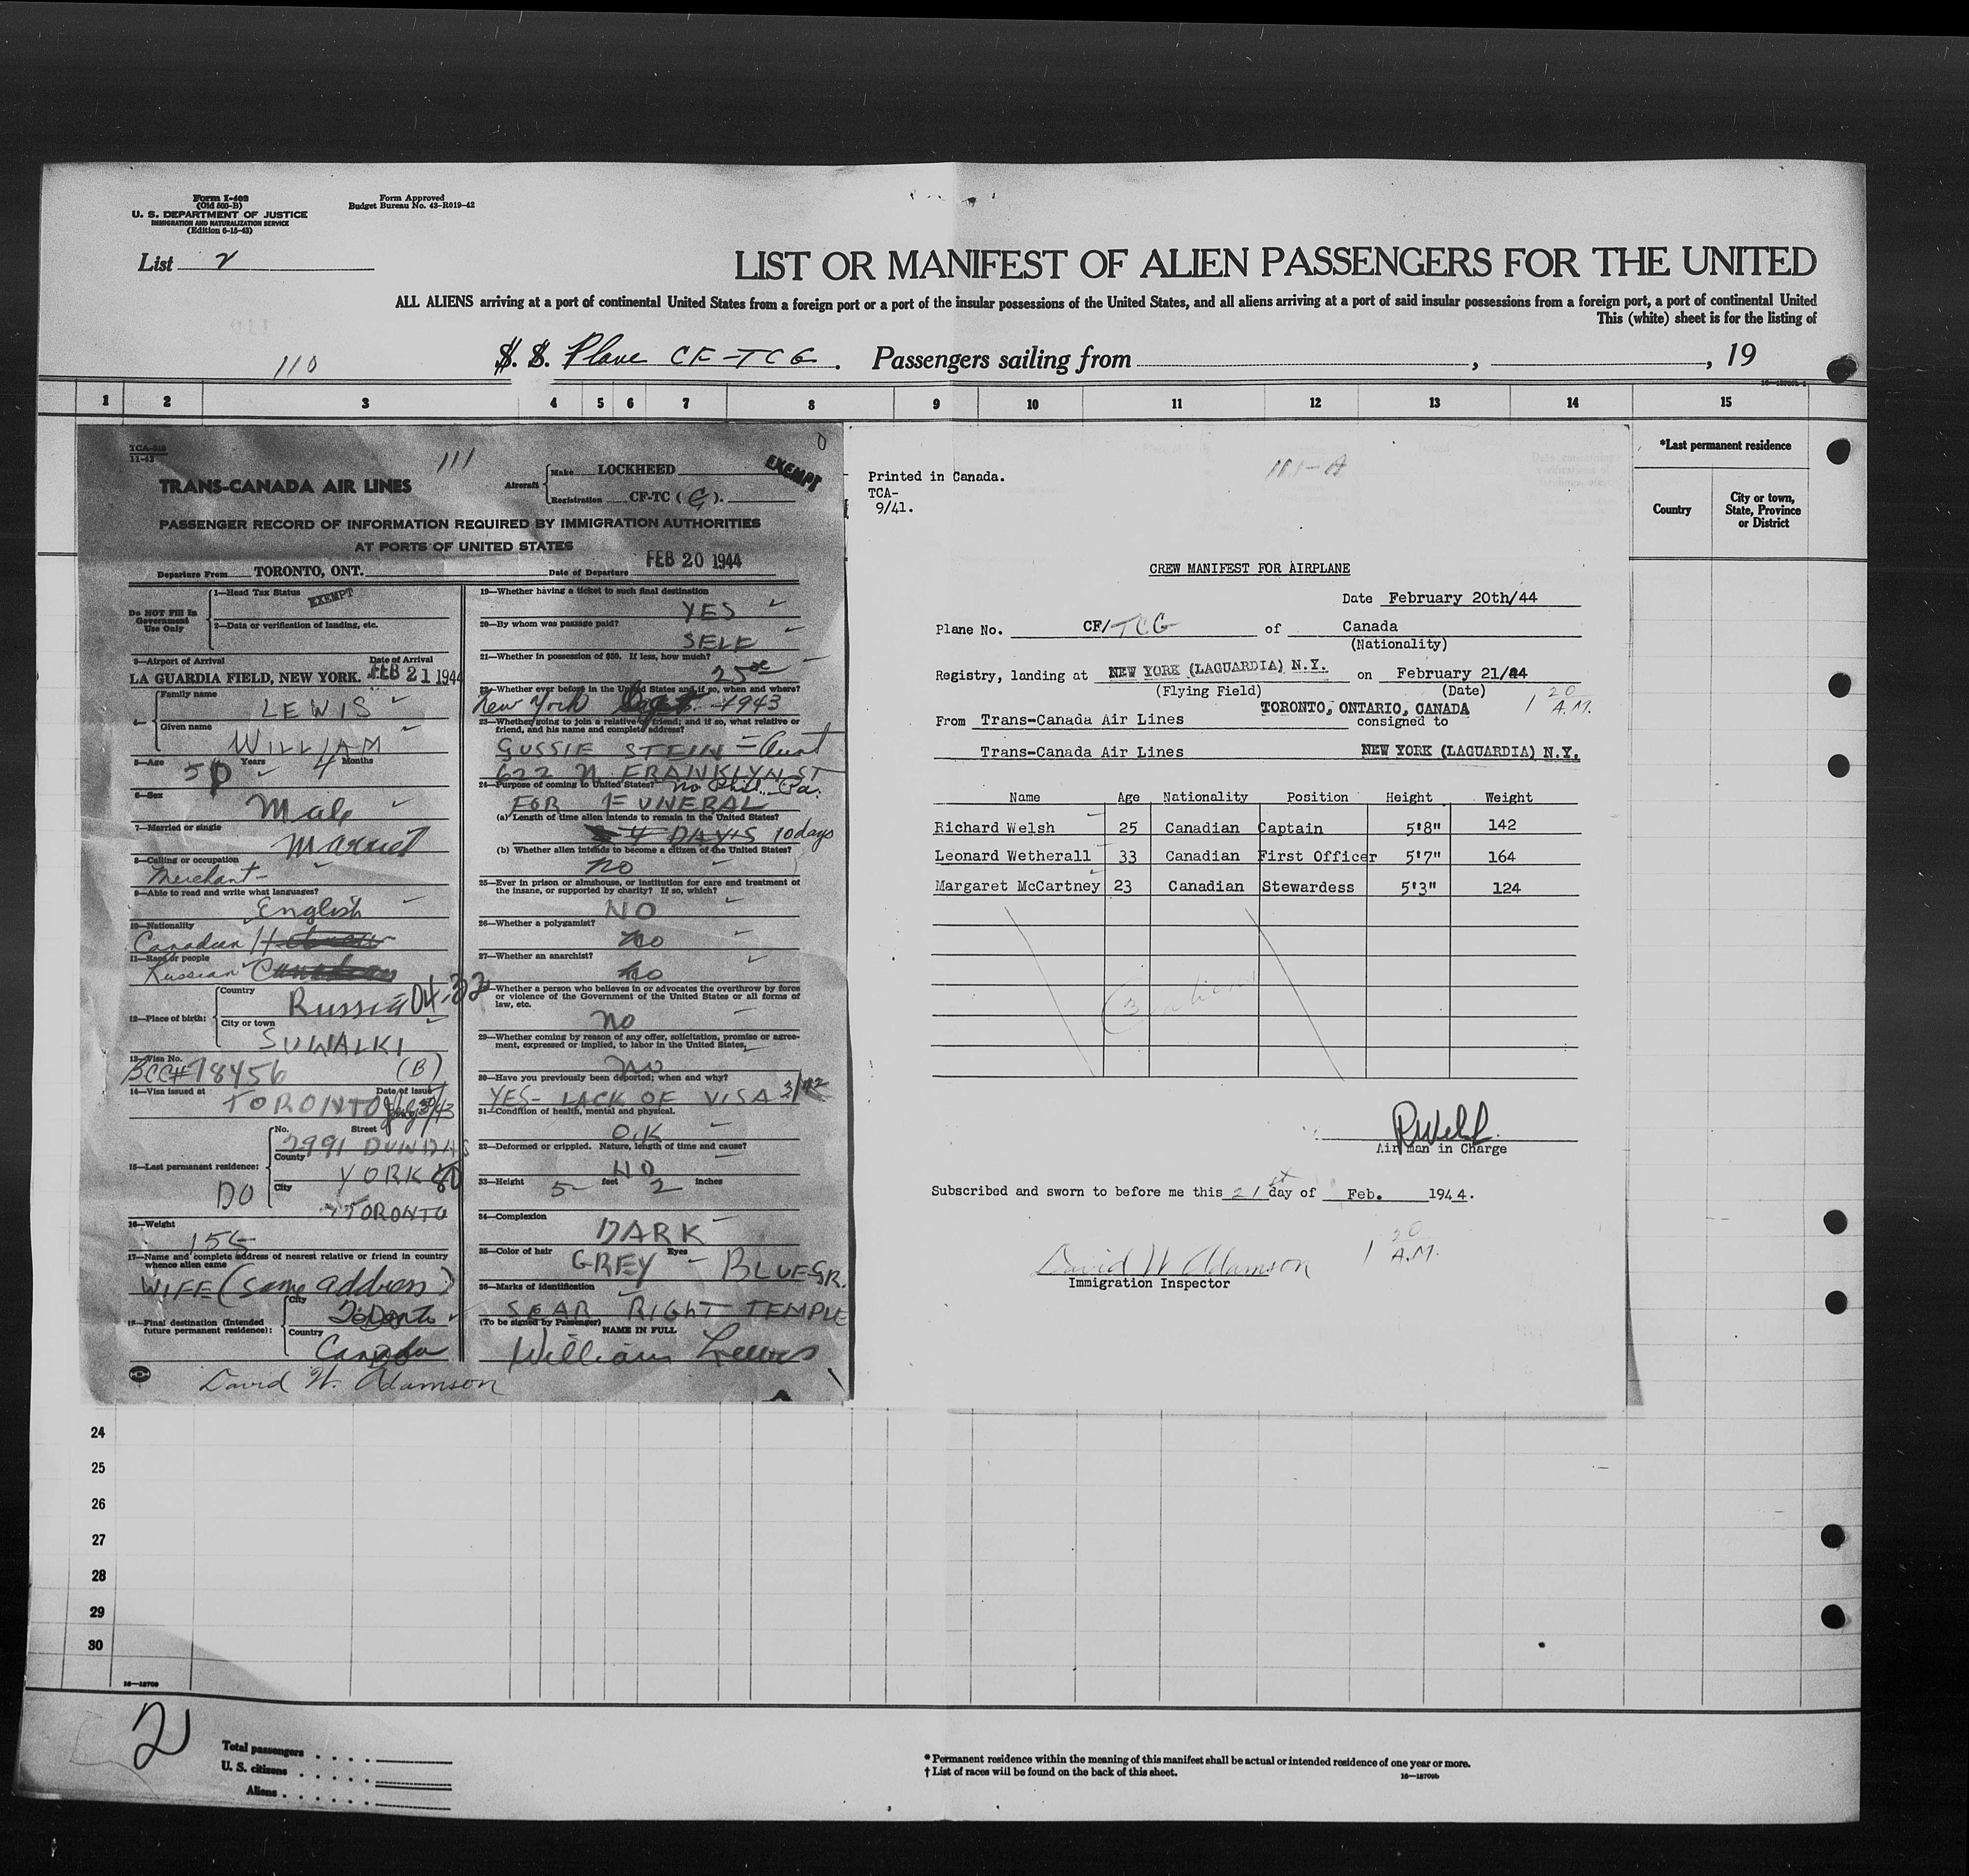 Form I-402
(Old 500-B)
U. S. DEPARTMENT OF JUSTICE
IMMIGRATION AND NATURALIZATION SERVICE
(Edition 6-15-43)
Form Approved
Budget Bureau No. 43-R019-42
List 2
LIST OR MANIFEST OF ALIEN PASSENGERS FOR THE UNITED
ALL ALIENS arriving at a port of continental United States from a foreign port or a port of the insular possessions of the United States, and all aliens arriving at a port of said insular possessions from a foreign port, a port of continental United
This (white) sheet is for the listing of
110
S. S. Plane CF-TCG. Passengers sailing from , , 19
1 2 3 4 5 6 7 8 9 10 11 12 13 14 15
*Last permanent residence
Country
City or town, State, Province or District
11-43
111
0
TRANS-CANADA AIR LINES
Aircraft
Make LOCKHEED
Registration CF-TC (G).
EXEMPT
PASSENGER RECORD OF INFORMATION REQUIRED BY IMMIGRATION AUTHORITIES
AT PORTS OF UNITED STATES
Departure From TORONTO, ONT. Date of Departure FEB 20 1944
Do NOT Fill In Government Use Only
1—Head Tax Status EXEMPT
2—Data or verification of landing, etc.
3—Airport of Arrival Date of Arrival
LA GUARDIA FIELD, NEW YORK. FEB 21 1944
4—
Family name
LEWIS
Given name
WILLIAM
5—Age 50 Years 4 Months
6—Sex
Male
7—Married or single
Married
8—Calling or occupation
Merchant
9—Able to read and write what languages?
English
10—Nationality
Canadian Hebrew
11—Race or people
Russian Canadian
12—Place of birth:
Country
Russia 04-32
City or town
SUWALKI
13—Visa No.
BCC# 78456 (B)
14—Visa issued at Date of issue
TORONTO July 30/43
15—Last permanent residence:
No. Street
2991 DUNDAS
County
YORK 80
DO
City
TORONTO
16—Weight
155
17—Name and complete address of nearest relative or friend in country whence alien came
WIFE (same address)
18—Final destination (Intended future permanent residence):
City
Toronto
Country
Canada
David W. Adamson
19—Whether having a ticket to such final destination
YES
20—By whom was passage paid?
SELF
21—Whether in possession of $50. If less, how much?
25
22—Whether ever before in the United States and if so, when and where?
New York 1943
23—Whether going to join a relative or friend; and if so, what relative or friend, and his name and complete address?
GUSSIE STEIN = Aunt
622 N FRANKLYN ST
24—Purpose of coming to United States? No Phil., Pa.
FOR FUNERAL
(a) Length of time alien intends to remain in the United States?
4 DAYS 10 days
(b) Whether alien intends to become a citizen of the United States?
NO
25—Ever in prison or almshouse, or institution for care and treatment of the insane, or supported by charity? If so, which?
NO
26—Whether a polygamist?
No
27—Whether an anarchist?
No
28—Whether a person who believes in or advocates the overthrow by force or violence of the Government of the United States or all forms of law, etc.
No
29—Whether coming by reason of any offer, solicitation, promise or agreement, expressed or implied, to labor in the United States.
No
30—Have you previously been deported; when and why?
YES- LACK OF VISA 3/42
31—Condition of health, mental and physical.
O.K
32—Deformed or crippled. Nature, length of time and cause?
NO
33—Height 5 feet 2 inches
34—Complexion
DARK
35—Color of hair Eyes
GREY - BLUE GR.
36—Marks of identification
SCAR RIGHT TEMPLE
(To be signed by Passenger)
NAME IN FULL
William Lewis
Printed in Canada.
TCA-
9/41.
111-A
CREW MANIFEST FOR AIRPLANE
Date February 20th/44
Plane No. CF/TCG of Canada
(Nationality)
Registry, landing at NEW YORK (LAGUARDIA) N.Y. on February 21/44
(Flying Field) (Date)
1 20 A.M.
TORONTO, ONTARIO, CANADA
From Trans-Canada Air Lines consigned to
Trans-Canada Air Lines NEW YORK (LAGUARDIA) N.Y.
Name Age Nationality Position Height Weight
Richard Welsh 25 Canadian Captain 5'8" 142
Leonard Wetherall 33 Canadian First Officer 5'7" 164
Margaret McCartney 23 Canadian Stewardess 5'3" 124
Air man in Charge
Subscribed and sworn to before me this 21st day of Feb. 1944.
David W Adamson
Immigration Inspector
1 20 A.M.
24
25
26
27
28
29
30
16—18709
2
Total passengers
U. S. citizens
Aliens
* Permanent residence within the meaning of this manifest shall be actual or intended residence of one year or more.
† List of races will be found on the back of this sheet.